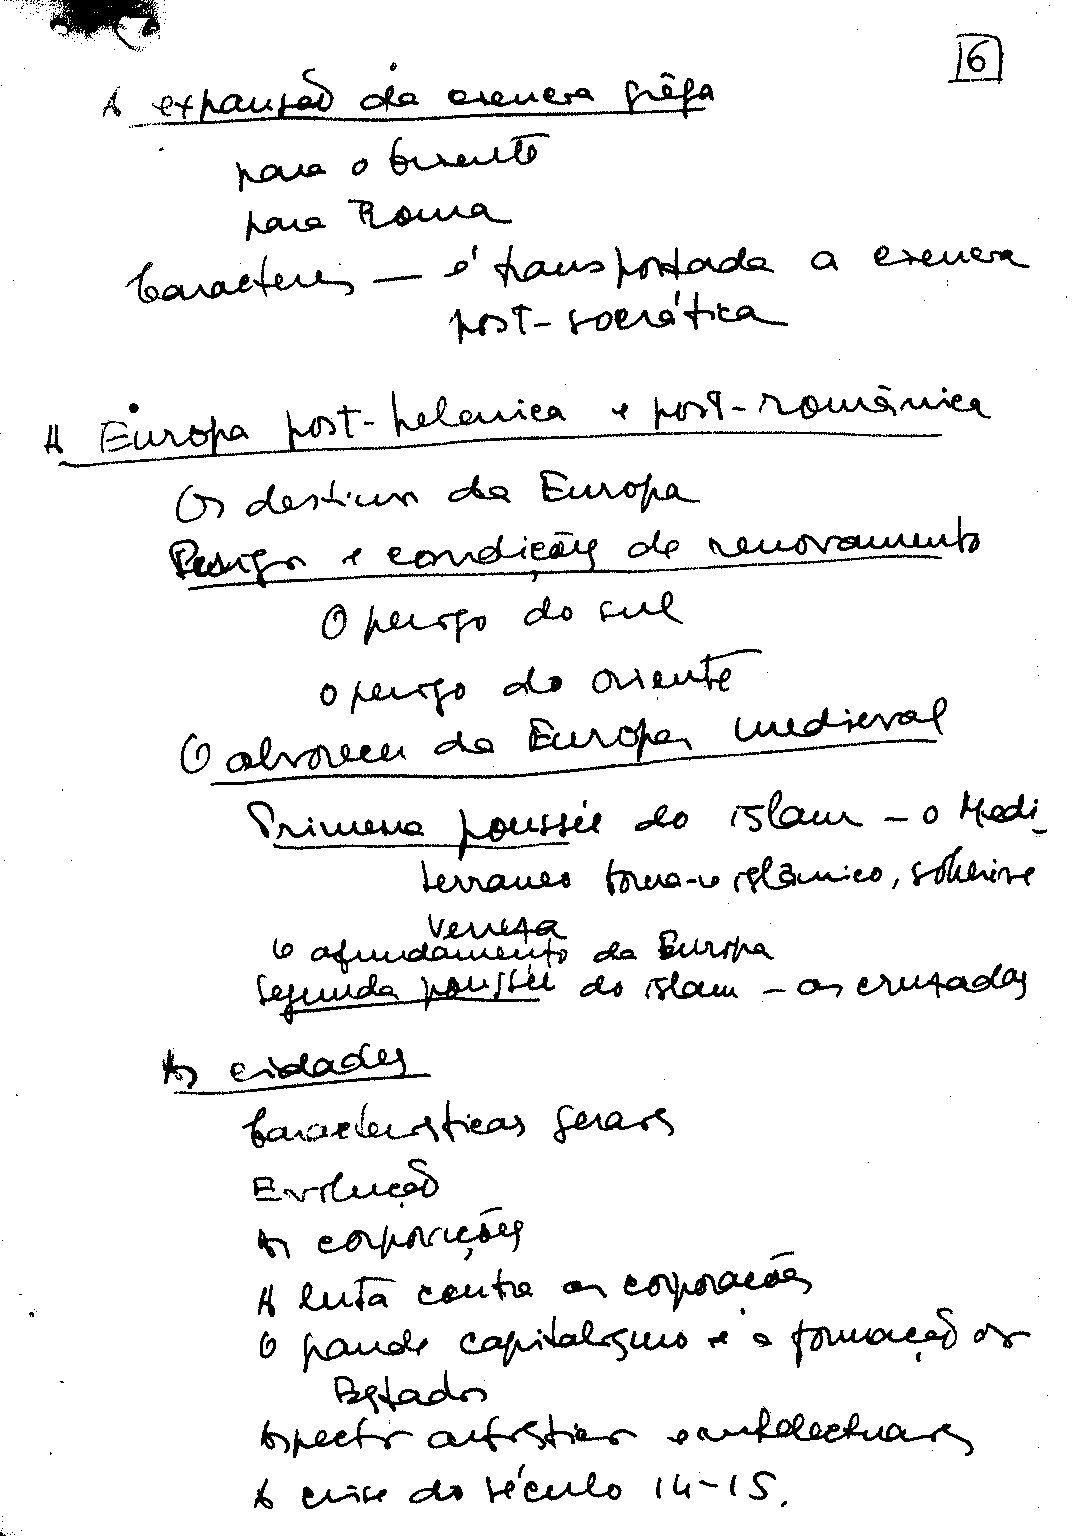 16
A expansão da ciência grêga
para o Oriente
para Roma
Caracteres — é transportada a ciência
post-socrática
A Europa post-helenica e post-românica
Os destinos da Europa
Perigos e condições de renovamento
O perigo do sul
O perigo do oriente
O alvorecer da Europa medieval
Primeira poussée do islam — o Medi_
terraneo torna-se islâmico, sobrevive
Veneza
O afundamento da Europa
Segunda poussée do islam — as cruzadas
As cidades
Características gerais
Evolução
As corporações
A luta contra as corporacões
O grande capitalismo e a formação dos
Estados
Aspectos artísticos e intelectuais
A crise do século 14-15.